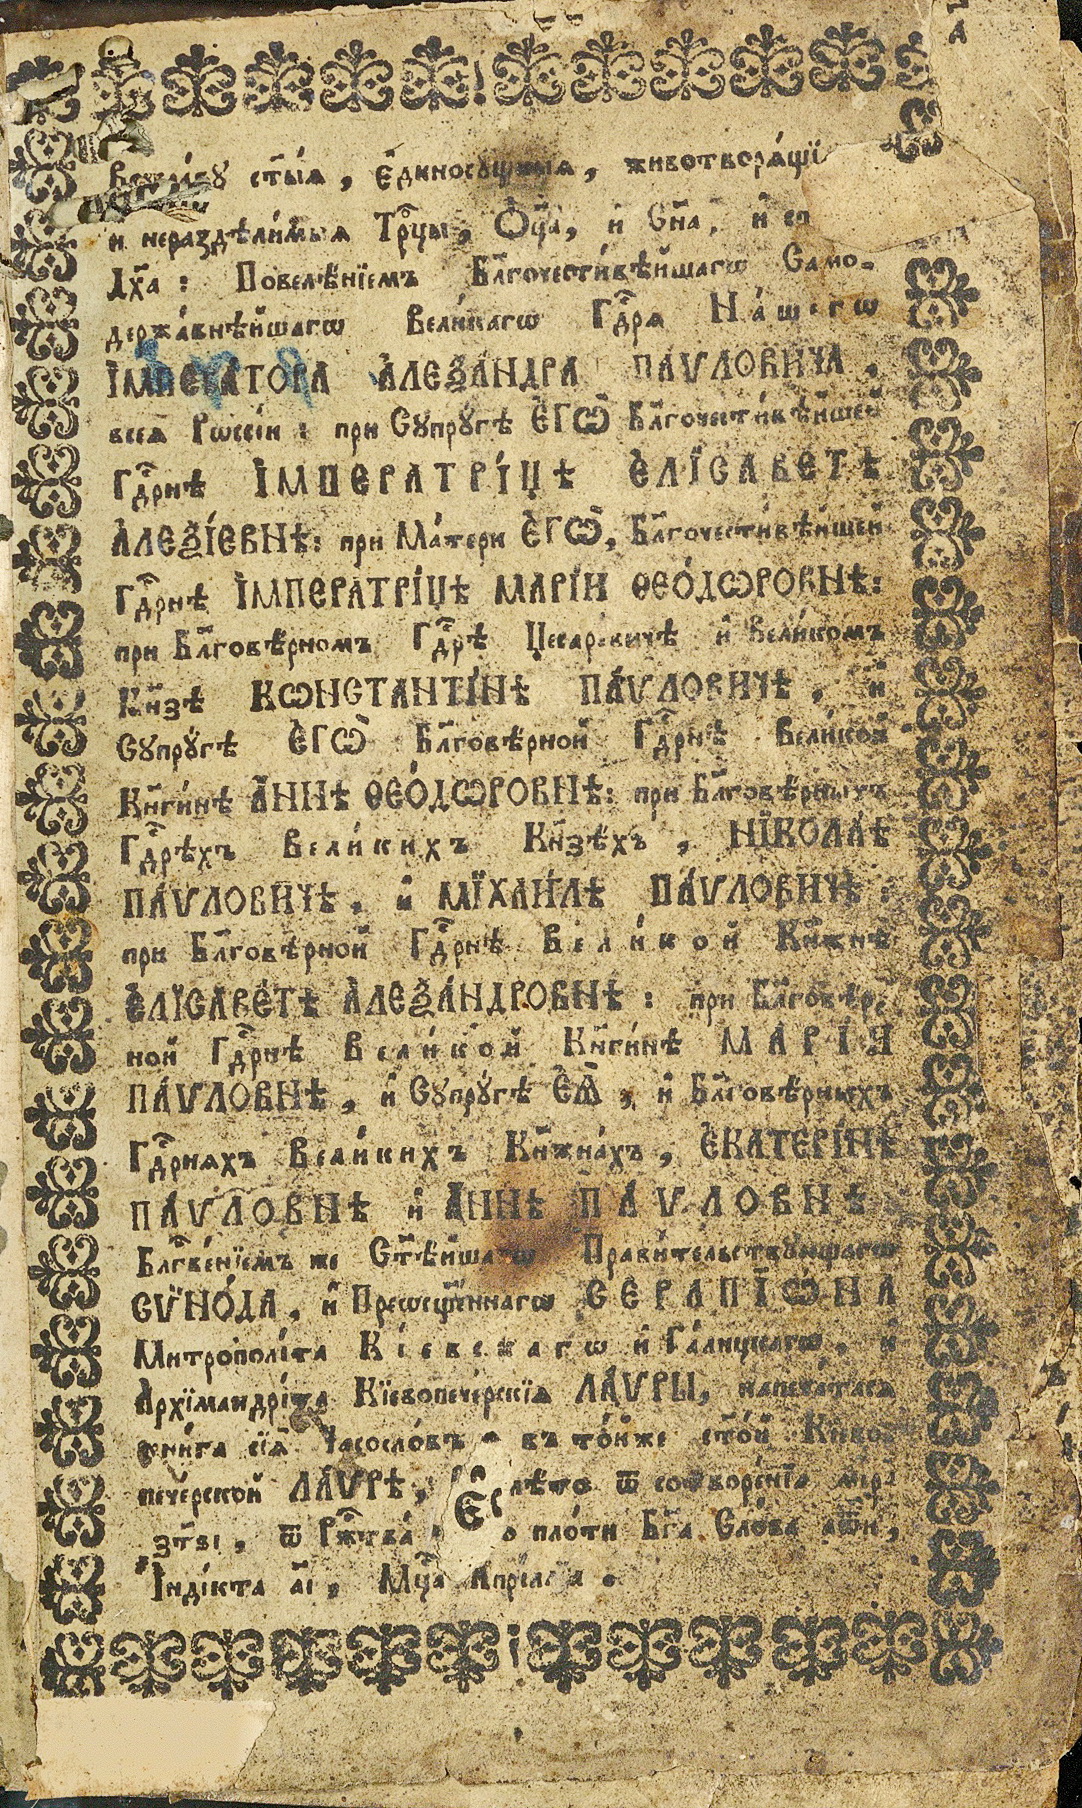 Во сла́вꙋ ст҃ы́ѧ, Є҆диносꙋ́щныѧ, животворѧ́щїѧ
и҆ нераздѣли́мыѧ Трⷪ҇цы, Ѻ҆ц҃а̀, и҆ Сн҃а, и҆ ст҃а́гѡ
Дх҃а: Повелѣ́нїемъ Бл҃гочести́вѣйшагѡ Само-
держа́внѣйшагѡ Вели́кагѡ Гдⷭ҇рѧ На́шегѡ
І҆МПЕРА́ТОРА А҆ЛЕѮА́НДРА ПА́ѴЛОВИЧА,
всеѧ̀ Рѡссі́и: при Сꙋпрꙋ́гѣ Є҆ГѠ̀ Бл҃гочести́вѣйшей
Гдⷭ҇рнѣ І҆МПЕРАТРІ́ЦѢ Є҆ЛІСАВЕ́ТѢ
А҆ЛЕѮІ́ЕВНѢ: при Ма́тери Є҆ГѠ̀, Бл҃гочести́вѣйшей
Гдⷭ҇рнѣ І҆МПЕРАТРІ́ЦѢ МАРІ́И ѲЕО́ДѠРОВНѢ:
при Бл҃говѣ́рномъ Гдⷭ҇рѣ Цесаре́вичѣ и҆ Вели́комъ
Кн҃зѣ КѠНСТАНТІ́НѢ ПА́ѴЛОВИЧѢ, и҆
Сꙋпрꙋ́гѣ Є҆ГѠ̀ Бл҃говѣ́рной Гдⷭ҇рнѣ Вели́кой
Кн҃ги́нѣ А҆́ННѢ ѲЕО́ДѠРОВНѢ: при Бл҃говѣ́рныхъ
Гдⷭ҇рѣхъ Вели́кихъ Кн҃зѣ́хъ, НІКОЛА́Ѣ
ПА́ѴЛОВИЧѢ, и҆ МІХАИ́ЛѢ ПА́ѴЛОВИЧѢ:
при Бл҃говѣ́рной Гдⷭ҇рнѣ Вели́кой Кн҃жнѣ̀
Є҆ЛІСАВЕ́ТѢ А҆ЛЕѮА́НДРОВНѢ: при Бл҃говѣ́р-
ной Гдⷭ҇рнѣ Вели́кой Кн҃ги́нѣ МАРІ́И
ПА́ѴЛОВНѢ, и҆ Сꙋпрꙋ́гѣ Є҆Ѧ̀, и҆ Бл҃говѣ́рныхъ
Гдⷭ҇рнѧхъ Вели́кихъ Кн҃жна́хъ, Є҆КАТЕРІ́НѢ
ПА́ѴЛОВНѢ и҆ А҆́ННѢ ПА́ѴЛОВНѢ
Блг҃ве́нїемъ же Ст҃ѣ́йшагѡ Прави́тельствꙋющагѡ
СѴНО́ДА, и҆ Преѡсщ҃е́ннагѡ СЕРАПІѠ́НА
Митрополі́та Кі́евскагѡ и҆ Га́лицкагѡ, и҆
А҆рхїмандрі́та Кїевопече́рскїѧ ЛА́ѴРЫ, напеча́тасѧ
кни́га сїѧ̀ Часосло́въ въ то́йже ст҃о́й Кїево-
пече́рской ЛА́ѴРѢ, лѣ́то ѿ сотворе́нїѧ мі́ра
҂зт҃ві, ѿ Рж҃тва̀ пло́ти Бг҃а Сло́ва ҂аѿ҃д,
І҆ндікта а҃і, Мцⷭ҇а А҆прі́лїа.